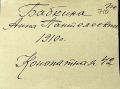 Бабкина
Анна Пантелеевна
1910г.
Конопатная 42